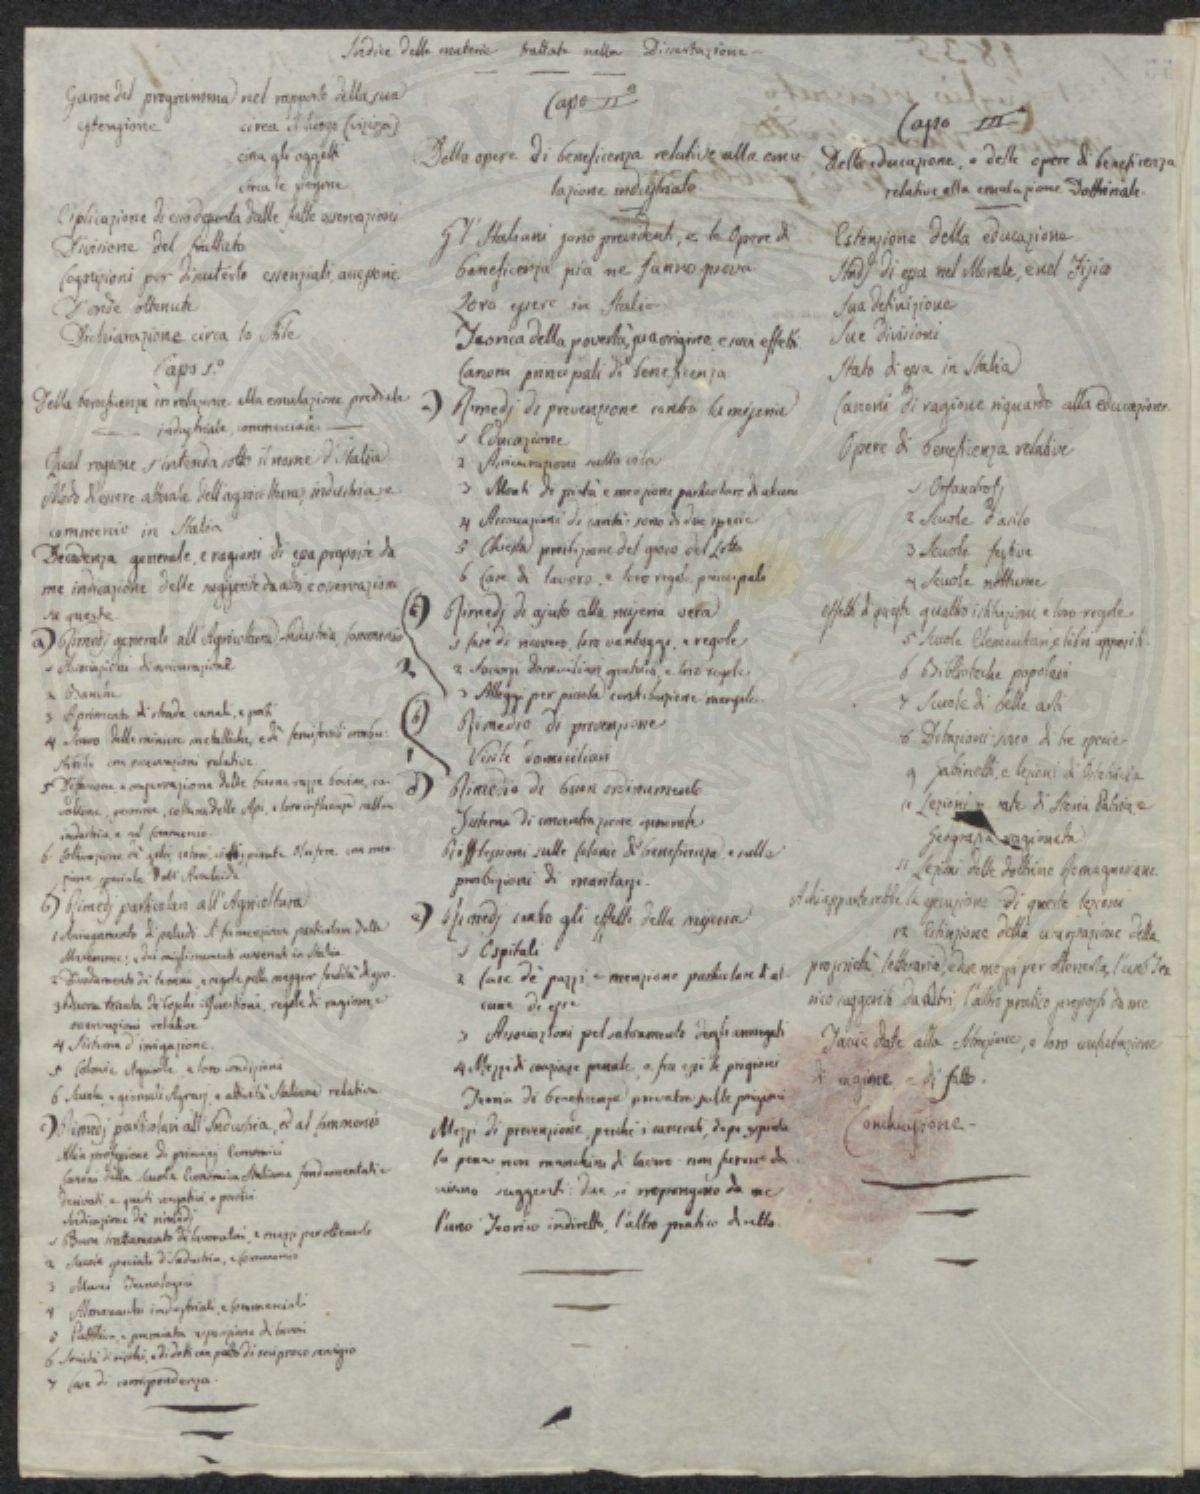 Indice delle materie trattate nella Dissertazione
Esame del programma nel rapporto della sua
estensione circa il luogo
circa gli oggetti
circa le persone
Esplicazione di esso desunta dalle fatte osservazioni
Divisione del trattato
Cognizioni per discuterlo essenziali, a me pone
D'onde ottenute
Dichiarazione circa lo stile
Capo I.º
Della beneficenza in relazione alla emulazione prediale
industriale, commerciale.
Qual regione s'intenda sotto il nome d'Italia
Modo di essere attuale dell'agricoltura, industria, e
commercio in Italia
Decadenza generale, e ragioni di essa proposte da
me indicazione delle suggerite da altri e osservazioni
su queste
a) Rimedj generali all'Agricoltura, Industria, Commercio
1 Associazioni di assicurazione
2 Banche
3 Aprimento di strade canali, e porti
4 Scavo delle miniere metalliche, e di fossili
con osservazioni relative
5 Diffusione e conservazione delle buone razze bovine, ca-
valline, pecorine, coltura delle Api, e loro influenza nella
industria e nel commercio.
6 Coltivazione di gelsi, cotoni, piante oleifere con men-
zione speciale dell'Arachide
b) Rimedj particolari all'Agricoltura
1 Asciugamento di paludi particolare delle
Maremme; e dei miglioramenti avvenuti in Italia
2
3
osservazioni relative
4 Sistema d'irrigazione.
5 Colonie Agricole e loro condizione
6 Scuole, e giornali Agrarj, e attività Italiana relativa
c) Rimedj particolari all'Industria, ed al Commercio
Mia professione di principj Economici
Canoni della Scuola Economica Italiana fondamentali e
derivati e questi negativi o positivi
Indicazione de' rimedj
1 Buon trattamento de' lavoratori, e mezzi per ottenerlo
2 Scuole speciali d'Industria, e Commercio
3 Musei Tecnologici
4 Almanacchi industriali, e commerciali
5 Pubblica, e premiata esposizione di lavori
6 Società di artisti, e di dotti con patto di reciproco servigio
7 Case di corrispondenza.
Capo IIº
Delle opere di beneficenza relative alla emu-
lazione industriale
Gl'Italiani sono previdenti, e le Opere di
beneficenza pia ne fanno prova
Loro essere in Italia
Teorica della povertà, sua origine, e suoi effetti
Canoni principali di beneficenza
a) Rimedj di prevenzione contro la miseria
1 Educazione
2 Assicurazioni sulla vita
3 Monti di pietà e menzione particolare di alcuni
4 Associazioni di carità sono di due specie
5 Chiesta proibizione del gioco del Lotto
6 Case di lavoro, e loro regole principali
c) Rimedj di ajuto alla miseria vera
1 Case di ricovero, loro vantaggi, e regole
2 Soccorsi domiciliari gratuiti, e loro regole
3 Alloggi per piccola contribuzione mensile.
2
b) Rimedio di prevenzione
Visite domiciliari
1
d) Rimedio di buon ordinamento
Sistema di concentrazione generale
Riflessioni sulle Colonie di beneficenza e sulle
proibizioni di maritarsi.
e) Rimedj contro gli effetti della miseria
1 Ospitali
2 Case de' pazzi e menzione particolare di al-
cune di esse
3 Associazioni pel salvamento degli annegati
4 Mezzi di correzione penale, e fra essi le prigioni
Teoria di beneficenza preventiva sulle prigioni
Mezzi di prevenzione, perché i carcerati, dopo espiata
la pena non manchino di lavoro non furono da
niuno suggeriti: due si propongono da me
l'uno Teorico indiretto, l'altro pratico diretto.
Capo III
Della educazione, e delle opere di beneficenza
relative alla emulazione Dottrinale.
Estensione della educazione
Studj di essa nel Morale, e nel Fisico
Sua definizione
Sue divisioni
Stato di essa in Italia
Canoni di ragione riguardo alla educazione.
Opere di beneficenza relative
1 Orfanotrofj
2 Scuole d'asilo
3 Scuole festive
4 Scuole notturne
effetti di queste quattro istituzioni e loro regole
5 Scuole Elementari, e libri appositi.
6 Biblioteche popolari
7 Scuole di belle arti
8 Dotazioni sono di tre specie
9 Gabinetti, e lezioni di
10 Lezioni di Storia Patria, e
Geografia ragionata
11 Lezioni delle dottrine Romagnosiane.
A chi apparterrebbe la
di queste lezioni
12 Estinzione della usurpazione della
proprietà letteraria, e due mezzi per ottenerla, l'uno teo-
rico suggerito da altri, l'altro pratico proposto da me
Taccie date alla Istruzione, e loro confutazione
di ragione e di fatto.
Conclusione.